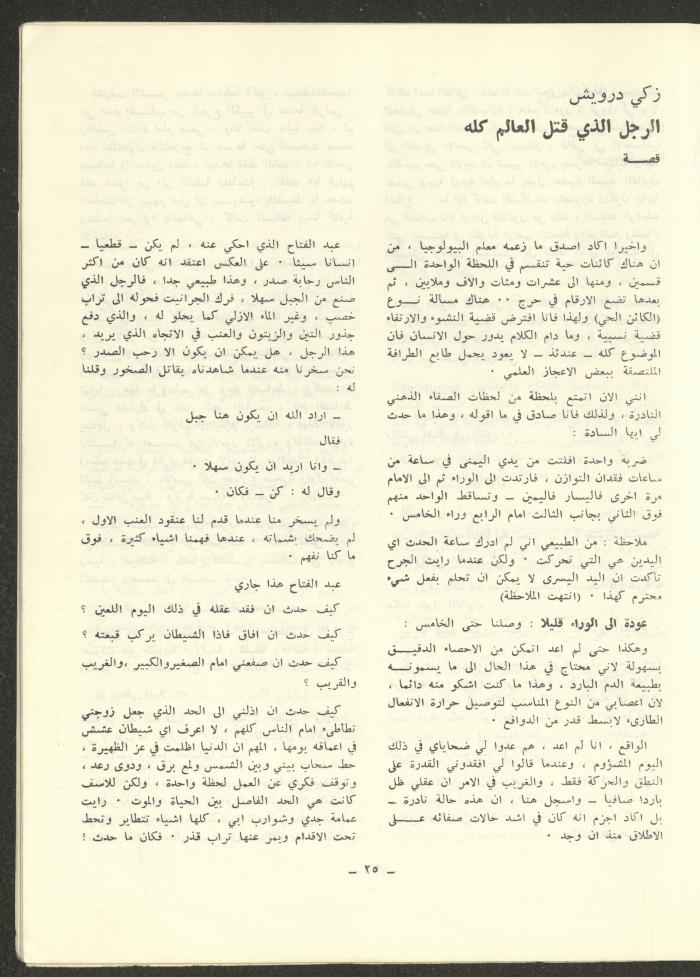 زكي درويش
الرجل الذي قتل العالم كله
قصـــة
واخيرا اكاد اصدق ما زعمه معلم البيولوجيا ، من
ان هناك كائنات حية تنقسم في اللحظة الواحدة الـــى
قسمين ، ومنها الى عشرات ومئات والاف وملايين ، ثم
بعدها تضع الارقام في حرج ٠٠ هناك مسالة نـــوع
(الكائن الحي) ولهذا فانا افترض قضية النشوء والارتقاء
قضية نسبية ، وما دام الكلام يدور حول الانسان فان
الموضوع كله ــ عندئذ ــ لا يعود يحمل طابع الطرافة
الملتصقة ببعض الاعجاز العلمي ٠
انني الان اتمتع بلحظة من لحظات الصفاء الذهني
النادرة ، ولذلك فانا صادق في ما اقوله ، وهذا ما حدث
لي ايها السادة :
ضربة واحدة افلتت من يدي اليمنى في ساعة من
ساعات فقدان التوازن ، فارتدت الى الوراء ثم الى الامام
مرة اخرى فاليسار فاليمين ــ وتساقط الواحد منهم
فوق الثاني بجانب الثالث امام الرابع وراء الخامس ٠
ملاحظة : من الطبيعي اني لم ادرك ساعة الحدث اي
اليدين هي التي تحركت ٠ ولكن عندما رايت الجرح
تأكدت ان اليد اليسرى لا يمكن ان تحلم بفعل شيء
محترم كهذا ٠ (انتهت الملاحظة)
عودة الى الوراء قليلا : وصلنا حتى الخامس :
وهكذا حتى لم اعد اتمكن من الاحصاء الدقيـــق
بسهولة لاني محتاج في هذا الحال الى ما يسمونـــه
بطبيعة الدم البارد ، وهذا ما كنت اشكو منه دائما ،
لان اعصابي من النوع المناسب لتوصيل حرارة الانفعال
الطارىء لابسط قدر من الدوافع ٠
الواقع ، انا لم اعد ، هم عدوا لي ضحاياي في ذلك
اليوم المشؤوم ، وعندما قالوا لي افقدوني القدرة على
النطق والحركة فقط ، والغريب في الامر ان عقلي ظل
باردا صافيا ــ واسجل هنا ، ان هذه حالة نادرة ــ
بل اكاد اجزم انه كان في اشد حالات صفائه علـــى
الاطلاق منذ ان وجد ٠
عبد الفتاح الذي احكي عنه ، لم يكن ــ قطعيا ــ
انسانا سيئا ٠ على العكس اعتقد انه كان من اكثر
الناس رحابة صدر ، وهذا طبيعي جدا ، فالرجل الذي
صنع من الجبل سهلا ، فرك الجرانيت فحوله الى تراب
خصب ، وغير الماء الازلي كما يحلو له ، والذي دفع
جذور التين والزيتون والعنب في الاتجاه الذي يريد ،
هذا الرجل ، هل يمكن ان يكون الا رحب الصدر ؟
نحن سخرنا منه عندما شاهدناه يقاتل الصخور وقلنا
له :
ــ اراد الله ان يكون هنا جبل
فقال
ــ وانا اريد ان يكون سهلا ٠
وقال له : كن ــ فكان ٠
ولم يسخر منا عندما قدم لنا عنقود العنب الاول ،
لم يضحك بشماته ، عندها فهمنا اشياء كثيرة ، فوق
ما كنا نفهم ٠
عبد الفتاح هذا جاري
كيف حدث ان فقد عقله في ذلك اليوم اللعين ؟
كيف حدث ان افاق فاذا الشيطان يركب قبعته ؟
كيف حدث ان صفعني امام الصغيروالكبير ،والغريب
والقريب ؟
كيف حدث ان اذلني الى الحد الذي جعل زوجتي
تطاطىء امام الناس كلهم ، لا اعرف اي شيطان عشش
في اعماقه يومها ، المهم ان الدنيا اظلمت في عز الظهيرة ،
حط سحاب بيني وبين الشمس ولمع برق ، ودوى رعد ،
وتوقف فكري عن العمل لحظة واحدة ، ولكن للاسف
كانت هي الحد الفاصل بين الحياة والموت ٠ رايت
عمامة جدي وشوارب ابي ، كلها اشياء تتطاير وتحط
تحت الاقدام ويمر عنها تراب قذر ٠ فكان ما حدث !
ــ ٢٥ ــ